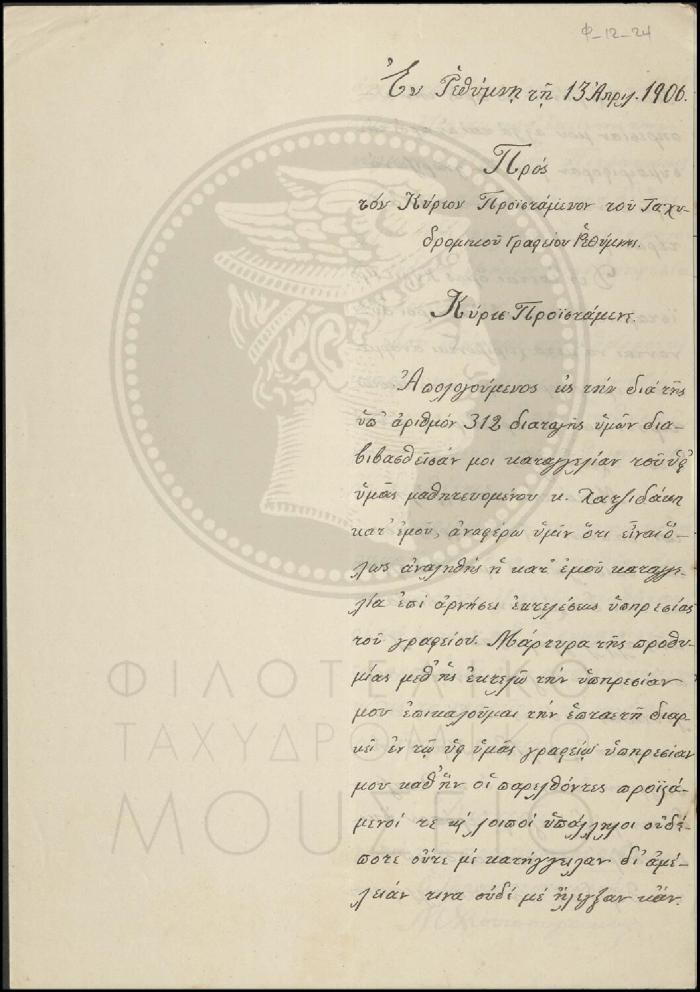 Φ-12-24
Ἐν Ῥεθύμνῃ τῇ 13 Ἀπριλ. 1906.
Πρός
τόν Κύριον Προϊστάμενον τοῦ Ταχυ-
δρομικοῦ Γραφείου Ῥεθύμνης.
Κύριε Προϊστάμενε.
Ἀπολογούμενος εἰς τήν διά τῆς
ὑπ' ἀριθμόν 312 διαταγῆς ὑμῶν δια-
βιβασθεῖσάν μοι καταγγελίαν τοῦ ὑφ'
ὑμᾶς μαθητευομένου κ. Χατζιδάκη
κατ' ἐμοῦ, ἀναφέρω ὑμῖν ὅτι εἶναι ὅ-
λως ἀναληθής ἡ κατ' ἐμοῦ καταγγε-
λία ἐπί ἀρνήσει ἐκτελέσεως ὑπηρεσίας
τοῦ γραφείου. Μάρτυρα τῆς προθυ-
μίας μεθ' ἧς ἐκτελῶ τήν ὑπηρεσίαν
μου ἐπικαλοῦμαι τήν ἑπταετῆ διαρ-
κῆ ἐν τῷ ὑφ' ὑμᾶς γραφείῳ ὑπηρεσίαν
μου καθ' ἥν οἱ παρελθόντες προϊστά-
μενοί τε κ̀ λοιποί ὑπάλληλοι οὐδέ-
ποτε οὔτε μέ κατήγγειλαν δι' ἀμέ-
λειάν τινα οὐδέ μέ ἤλεγξαν κἄν.
ΦΙΛΟΤΕΛΙΚΟ
ΤΑΧΥΔΡΟΜΙΚΟ
ΜΟΥΣΕΙΟ